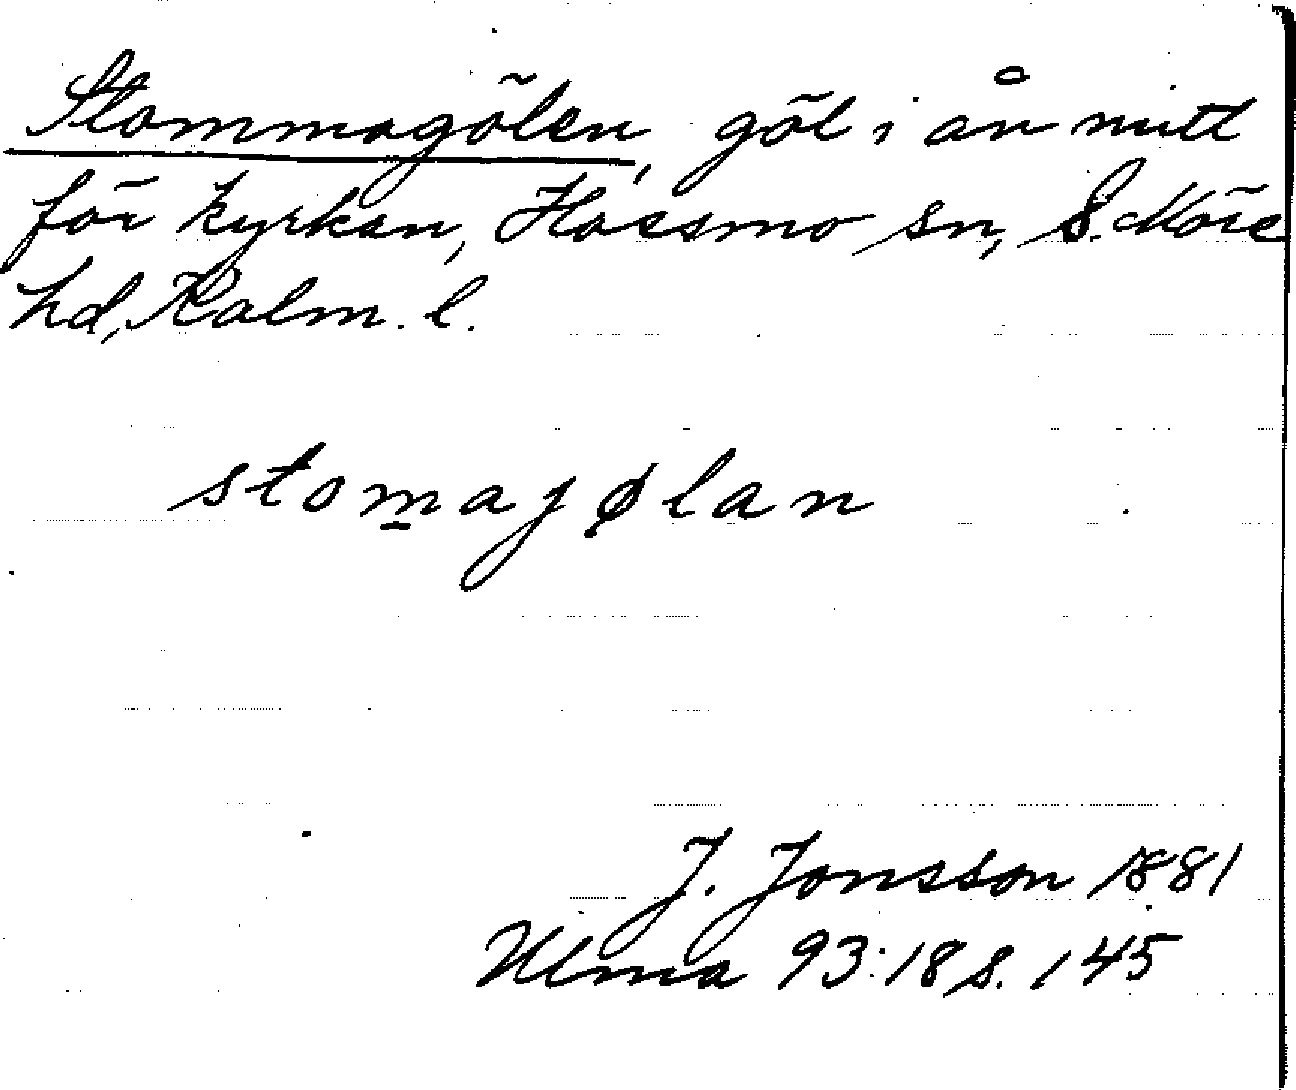 Stommagölen, göl i ån mitt
för kyrkan, Hossmo sn, S. Möre
hd, Kalm. l.
stom̲ajølan
J. Jonsson 1881
Ulma 93:18 s. 145